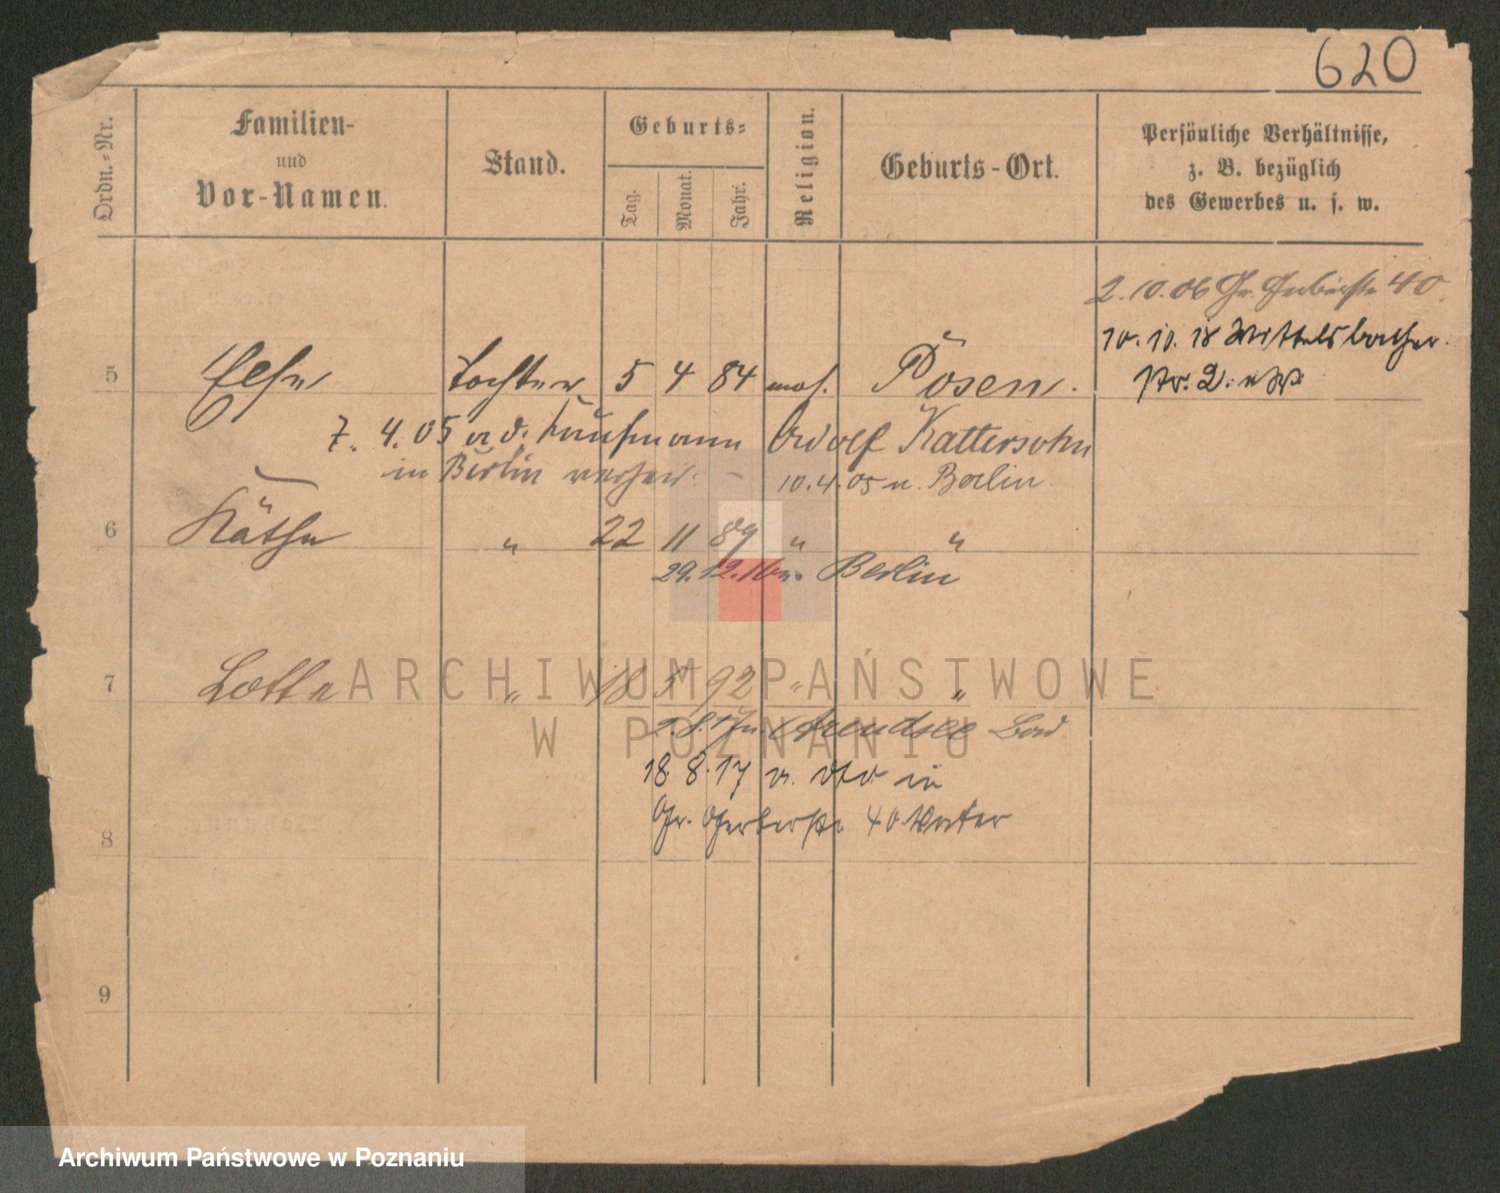 620
Ordn.-Nr.
Familien-
und
Vor-Namen.
Stand.
Geburts-
Tag.
Monat.
Jahr.
Religion.
Geburts-Ort.
Persönliche Verhältnisse,
z. B. bezüglich
des Gewerbes u. s. w.
2.10.06 Gr. Gerberstr 40
10.10.18 Wittelsbacher
str. 2.
5 Else Tochter 5 4 84 mos. Posen.
7. 4. 05 Kaufmann Adolf Kattersohn
in Berlin verheir. - 10.4.05 n. Berlin.
6 Käthe " 22 11 89 " "
29.12.16 n. Berlin
7 Lotte " 18 5 92 " "
8.17 n. Arendsee
18.8.17 v. in
Gr. Gerberstr 40 Vater
8
9
ARCHIWUM PAŃSTWOWE
W POZNANIU
Archiwum Państwowe w Poznaniu